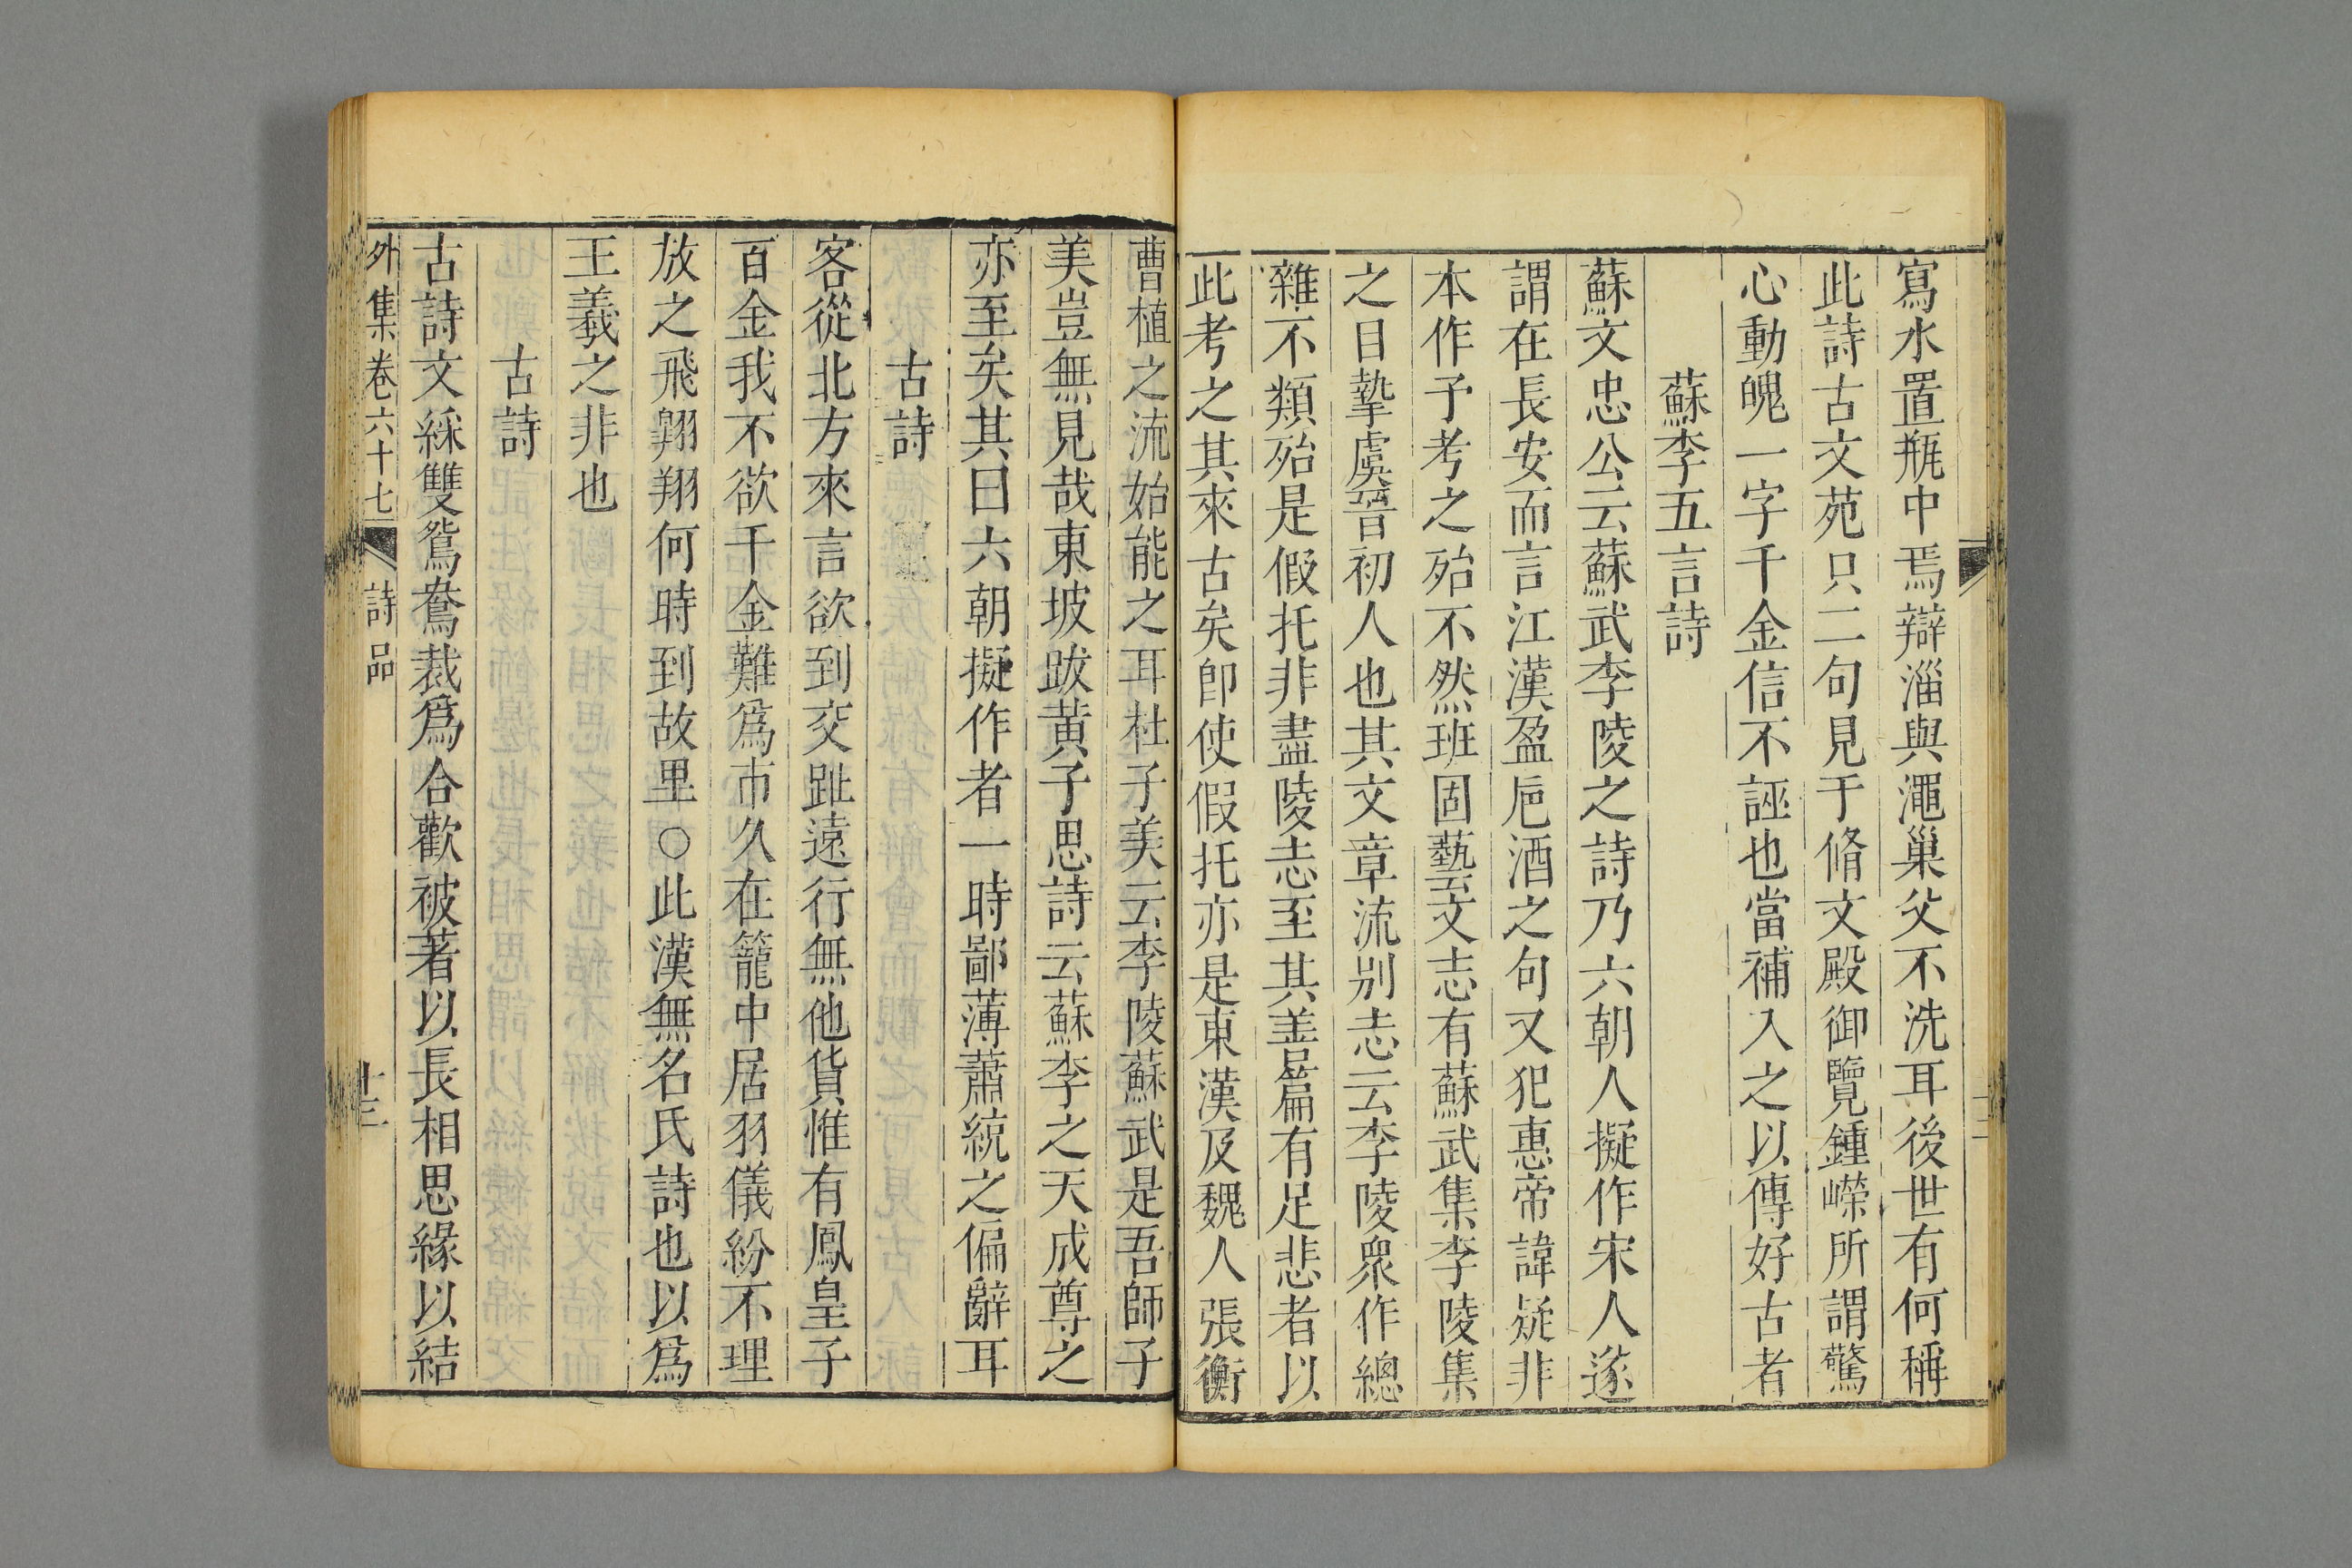 寫水置瓶中焉辯淄與澠巢父不洗耳後世有何稱
此詩古文苑只二句見于脩文殿御覽鍾嶸所謂驚
心動魄一字千金信不誣也當補入之以傳好古者
蘇李五言詩
蘇文忠公云蘇武李陵之詩乃六朝人擬作宋人遂
謂在長安而言江漢盈巵酒之句又犯惠帝諱疑非
本作予考之殆不然班固藝文志有蘇武集李陵集
之日摯虞晉初人也其文章流別志云李陵衆作總
雜不類殆是假托非盡陵志至其善篇有足悲者以
此考之其來古矣卽使假托亦是東漢及魏人張衡
曹植之流始能之耳杜子美云李陵蘇武是吾師子
美豈無見哉東坡跋黄子思詩云蘇李之天成尊之
亦至矣其曰六朝擬作者一時鄙薄蕭統之偏辭耳
古詩
客從北方來言欲到交趾遠行無他貨惟有鳳皇子
百金我不欲千金難爲市久在籠中居羽儀紛不理
放之飛翱翔何時到故里○此漢無名氏詩也以爲
王羲之非也
古詩
古詩文綵雙鴛鴦裁爲合歡被著以長相思緣以結
外集卷六十七 詩品 十三